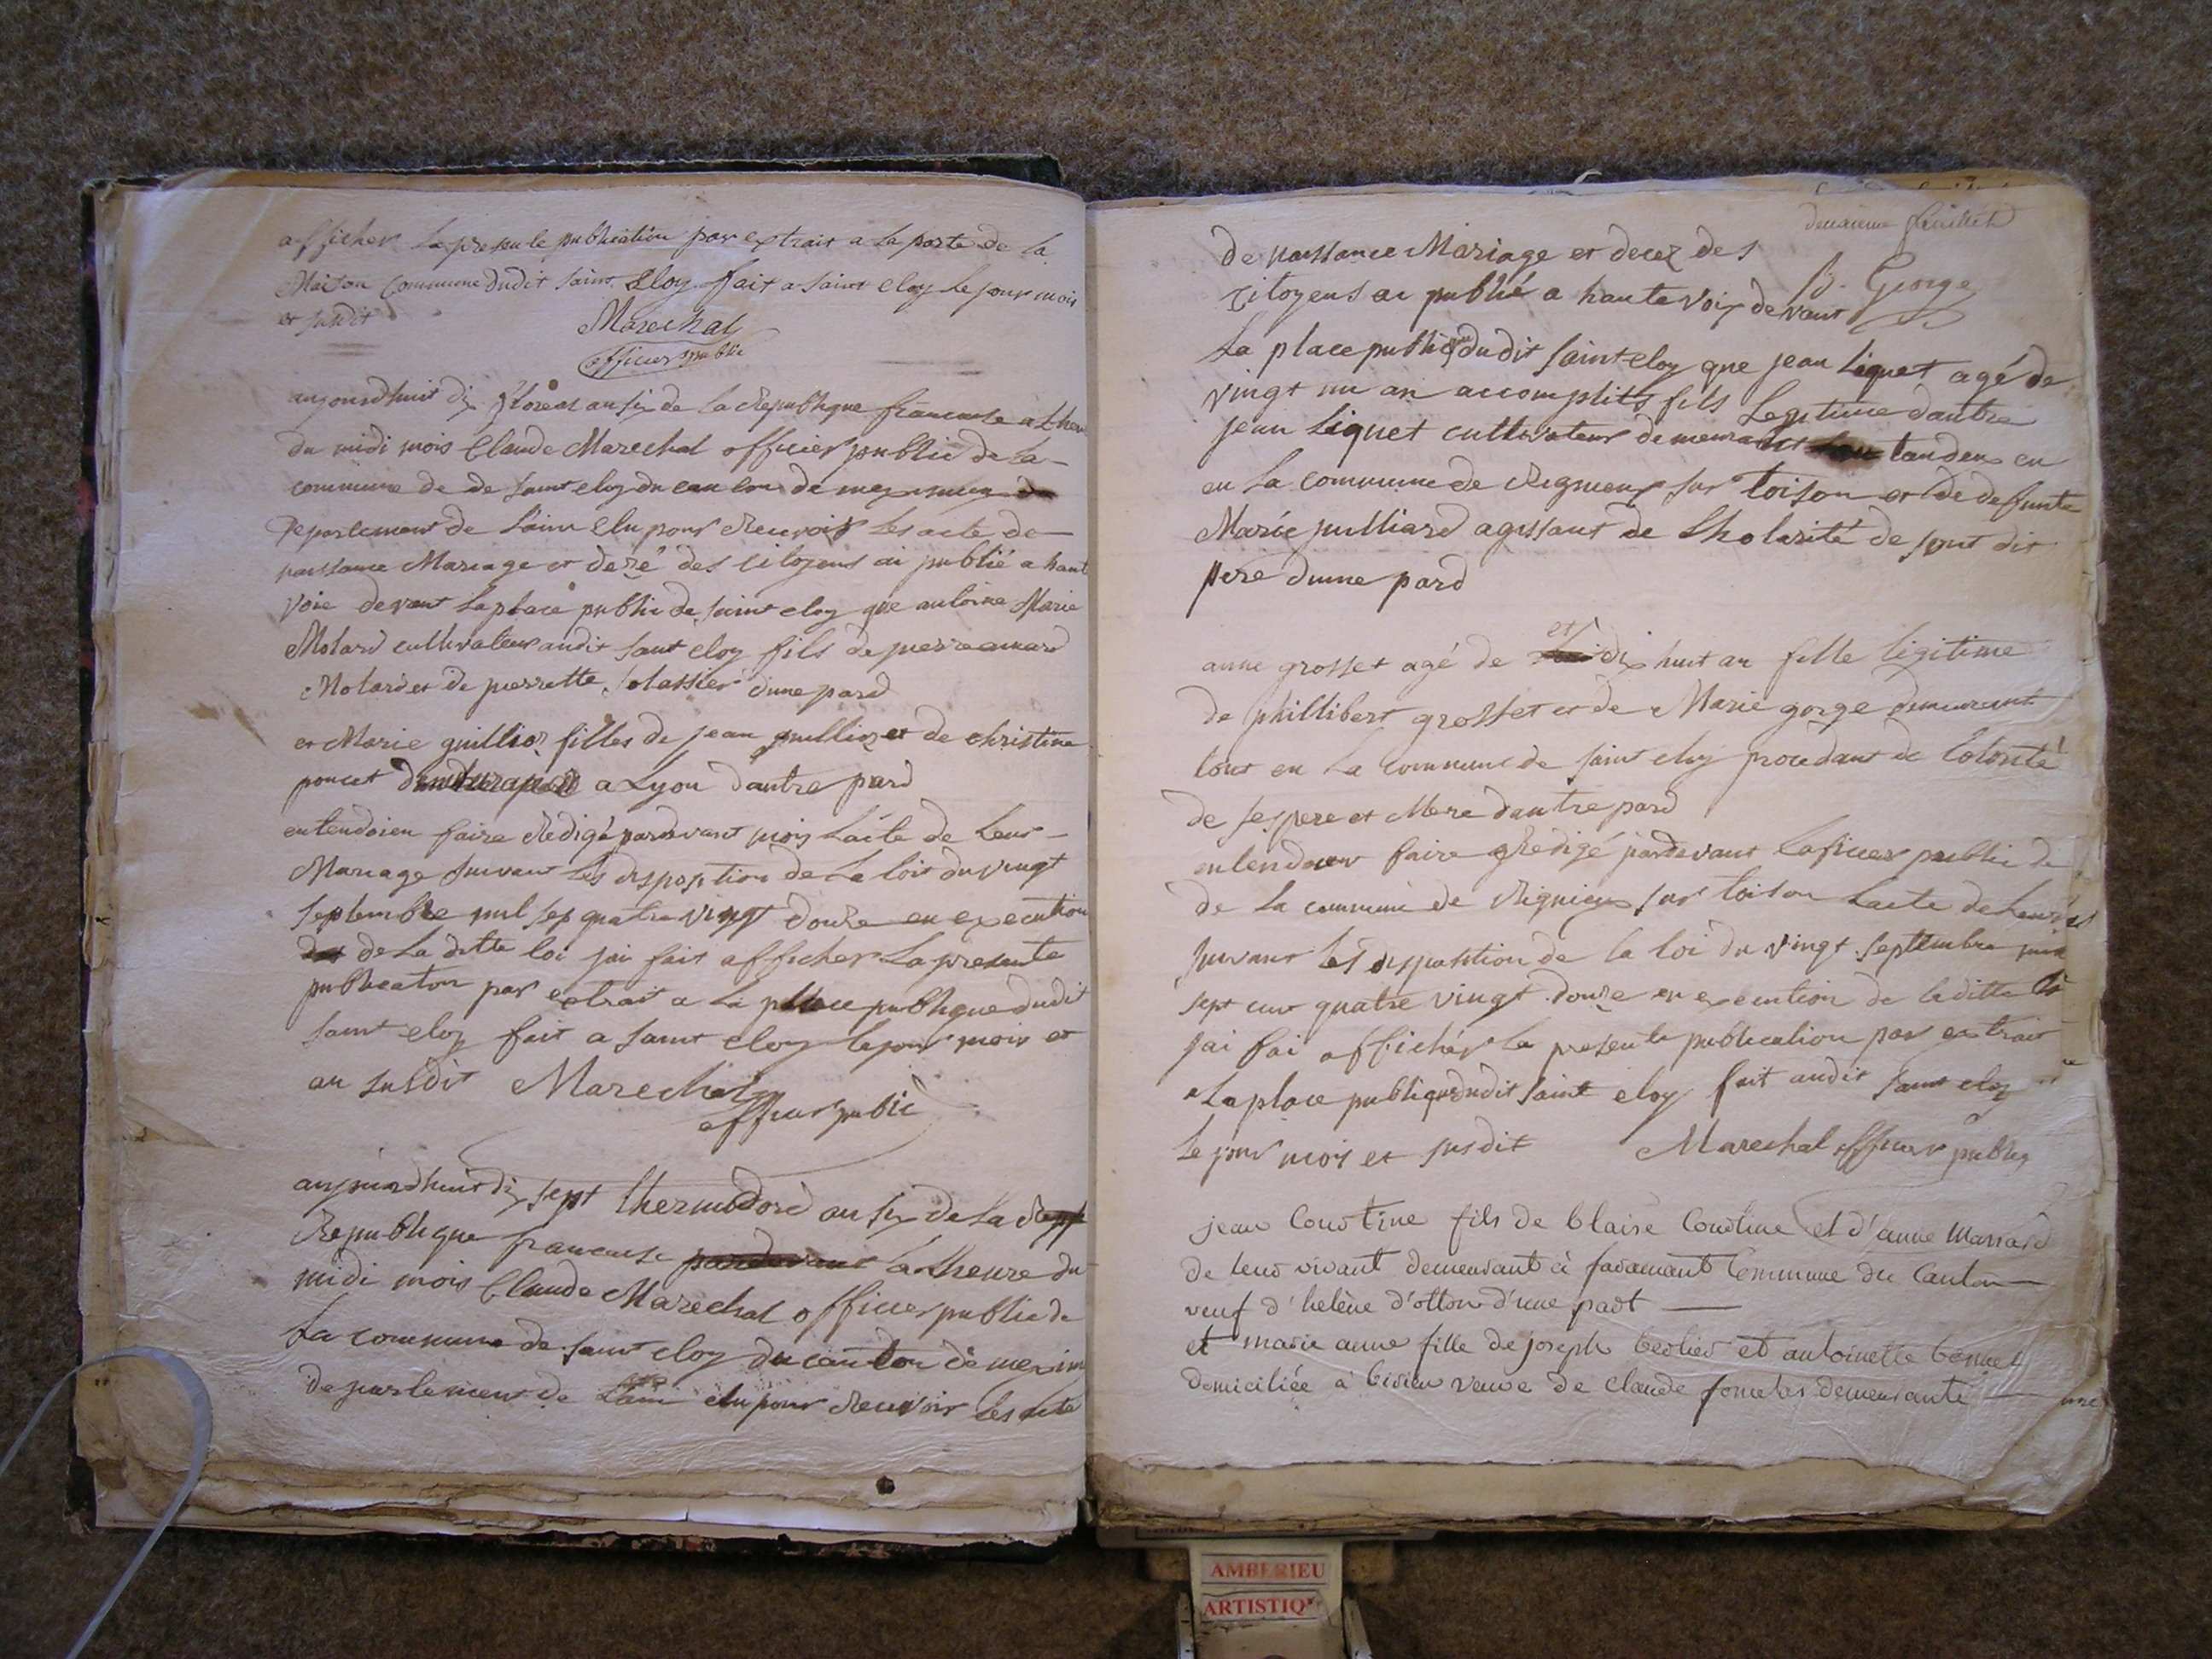 afficher La presente publication par extrait a La porte de la
Maison Commune dudit saint Eloy fait a saint eloy Le jour mois
et susdit
Marechal
officier public
aujourdhuit dix floreal an six de la Republique francaise
du midi mois Claude Marechal officier public de La
commune de de saint eloy du canton de
Departement de Lain elu pour Recevoir Les acte de
naissance Mariage et decé des citoyens ai publié a haut
voie devant La place public de saint eloy que antoine Marie
Molard cultivateur audit saint eloy fils de
Molard et de pierrette solassier dune pard
et Marie guillioz filles de jean guillioz et de christine
poncet a Lyon dautre pard
entendoien faire Redigé pardevant mois Lacte de Leur
Mariage suivant Les disposition de La lois du vingt
septembre mil sep quatre vingt douze en execution
de La ditte loi jai fait afficher La presente
publication par extrait a La place publique dudit
saint eloy fait a saint eloy le jour mois et
an susdit Marechal
officier public
aujourdhuit dix sept thermidord an six de La
Republique francaise La Lheure du
midi mois Claude Marechal officier public de
La commune de saint eloy du canton de meximi
departement de Lain elu pour Recevoir les acte
deuxieme feuillet
de naissance Mariage et decez des
B. George
citoyens ai publié a haute voix devant
La place public dudit saint eloy que jean Liquet agé de
vingt un an accomplits fils Legitime dautre
jean Liquet cultivateur demeurant tandeux en
en La commune de Rigneux sur toison et de defunte
Marie julliard agissant de Lhotorité de sont dit
pere dune pard
et
anne grosset agé de dix huit an fille légitime
de phillibert grosset et de Marie gorge demeurant
tout en La Commune de saint eloy procedant de Lotorité
de ses pere et Mere dautre pard
entendoien faire Redigé pardevant Lofficier public de
de La commune de Rignieux sur toison Lacte de
suivant les disposition de la loi du vingt septembre
sept cent quatre vingt douze en execution de laditte
jai fai affichér la presente publication par extrait
a La place publique dudit saint eloy fait audit saint eloy
Le jour mois et susdit Marechal officier public
jean Coustine fils de blaise Coustine et d'anne
de leur vivant demeurant à faramant Commune du Canton
veuf d'helène d'ottond d'une part
et marie anne fille de joseph berlier et antoinette
domiciliée à veuve de claude demeurante
AMBERIEU
ARTISTIQ